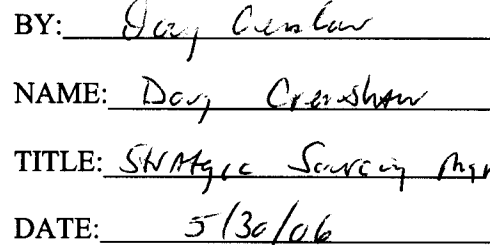 BY: Doug Crenshaw
NAME: Doug Crenshaw
TITLE: Strategic Sourcing Mgr
DATE: 5/30/06